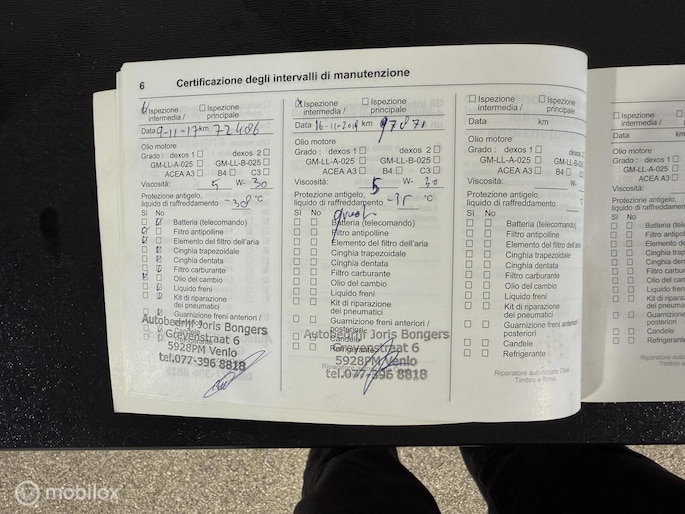 6 Certificazione degli intervalli di manutenzione
Ispezione intermedia / Ispezione principale
Data 9-11-17 km 72486
Olio motore
Grado : dexos 1 dexos 2
GM-LL-A-025 GM-LL-B-025
ACEA A3 B4 C3
Viscosità: 5 W- 30
Protezione antigelo,
liquido di raffreddamento -38 °C
Sì No
Batteria (telecomando)
Filtro antipolline
Elemento del filtro dell'aria
Cinghia trapezoidale
Cinghia dentata
Filtro carburante
Olio del cambio
Liquido freni
Kit di riparazione
dei pneumatici
Guarnizione freni anteriori /
Candele
Autobedrijf Joris Bongers
Grevenstraat 6
5928PM Venlo
tel.077-396 8818
Ispezione intermedia / Ispezione principale
Data 16-11-2018 km 97871
Olio motore
Grado : dexos 1 dexos 2
GM-LL-A-025 GM-LL-B-025
ACEA A3 B4 C3
Viscosità: 5 W- 30
Protezione antigelo,
liquido di raffreddamento °C
Sì No
Batteria (telecomando)
Filtro antipolline
Elemento del filtro dell'aria
Cinghia trapezoidale
Cinghia dentata
Filtro carburante
Olio del cambio
Liquido freni
Kit di riparazione
dei pneumatici
Guarnizione freni anteriori /
posteriori
Candele
Refrigerante
Autobedrijf Joris Bongers
Grevenstraat 6
5928PM Venlo
tel.077-396 8818
Ispezione intermedia / Ispezione principale
Data km
Olio motore
Grado : dexos 1 dexos 2
GM-LL-A-025 GM-LL-B-025
ACEA A3 B4 C3
Viscosità: W-
Protezione antigelo,
liquido di raffreddamento °C
Sì No
Batteria (telecomando)
Filtro antipolline
Elemento del filtro dell'aria
Cinghia trapezoidale
Cinghia dentata
Filtro carburante
Olio del cambio
Liquido freni
Kit di riparazione
dei pneumatici
Guarnizione freni anteriori /
posteriori
Candele
Refrigerante
Riparatore autorizzato Opel
Timbro e firma
Ispezione
intermedia /
Data
Olio motore
Grado : dexos 1
GM-LL-A-025
ACEA A3
Viscosità:
Protezione antigelo,
liquido di raffreddam
Sì No
Batteria (tele
Filtro antipo
Elemento
Cinghia tra
Cinghia de
Filtro carb
Olio del c
Liquido fr
Kit di rip
dei pne
Guarniz
posterio
Candel
Refrige
Riparatore
Tim
mobilox